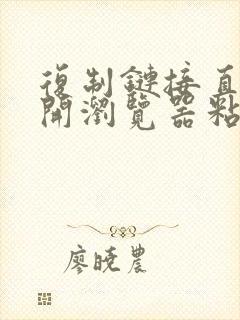 復制鏈接直
開瀏覽器粘
廖曉農